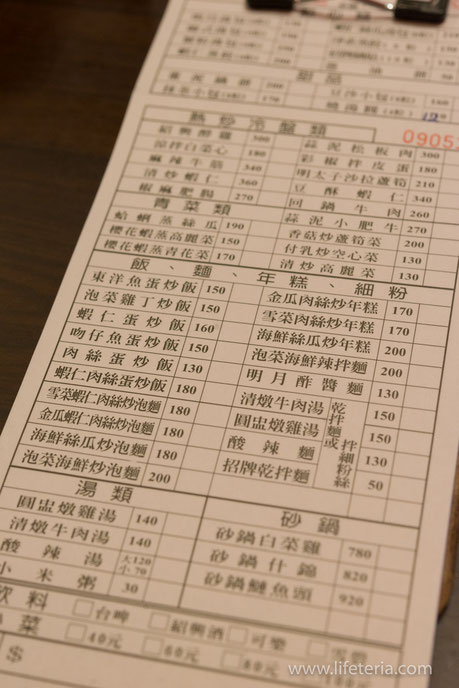 甜品
豆沙小包
熱炒冷盤類
09053
紹興醉雞 300 蒜泥松板肉 300
涼拌白菜心 180 彩椒拌皮蛋 180
麻辣牛筋 340 明太子沙拉蘆筍 210
清炒蝦仁 360 豆酥蝦仁 340
椒麻肥腸 270 回鍋牛肉 260
青菜類 蒜泥小肥牛 270
蛤蜊蒸絲瓜 190 香菇炒蘆筍菜 200
櫻花蝦蒸高麗菜 150 付乳炒空心菜 130
櫻花蝦蒸青花菜 170 清炒高麗菜 130
飯、麵、年糕、細粉
東洋魚蛋炒飯 150 金瓜肉絲炒年糕 170
泡菜雞丁炒飯 150 雪菜肉絲炒年糕 170
蝦仁蛋炒飯 160 海鮮絲瓜炒年糕 200
吻仔魚蛋炒飯 150 泡菜海鮮辣拌麵 200
肉絲蛋炒飯 130 明月酢醬麵 130
蝦仁肉絲蛋炒飯 180 清燉牛肉湯 乾拌麵或拌細粉絲 150
雪菜蝦仁肉絲炒泡麵 180 圓盅燉雞湯 150
金瓜蝦仁肉絲炒泡麵 180 酸辣麵 130
海鮮絲瓜炒泡麵 180 招牌乾拌麵 50
泡菜海鮮炒泡麵 200
湯類 砂鍋
圓盅燉雞湯 140 砂鍋白菜雞 780
清燉牛肉湯 140 砂鍋什錦 820
酸辣湯 大120 小70 砂鍋鰱魚頭 920
小米粥 30
飲料 □台啤 □紹興酒 □可樂
菜 □40元 □60元
$
www.lifeteria.com